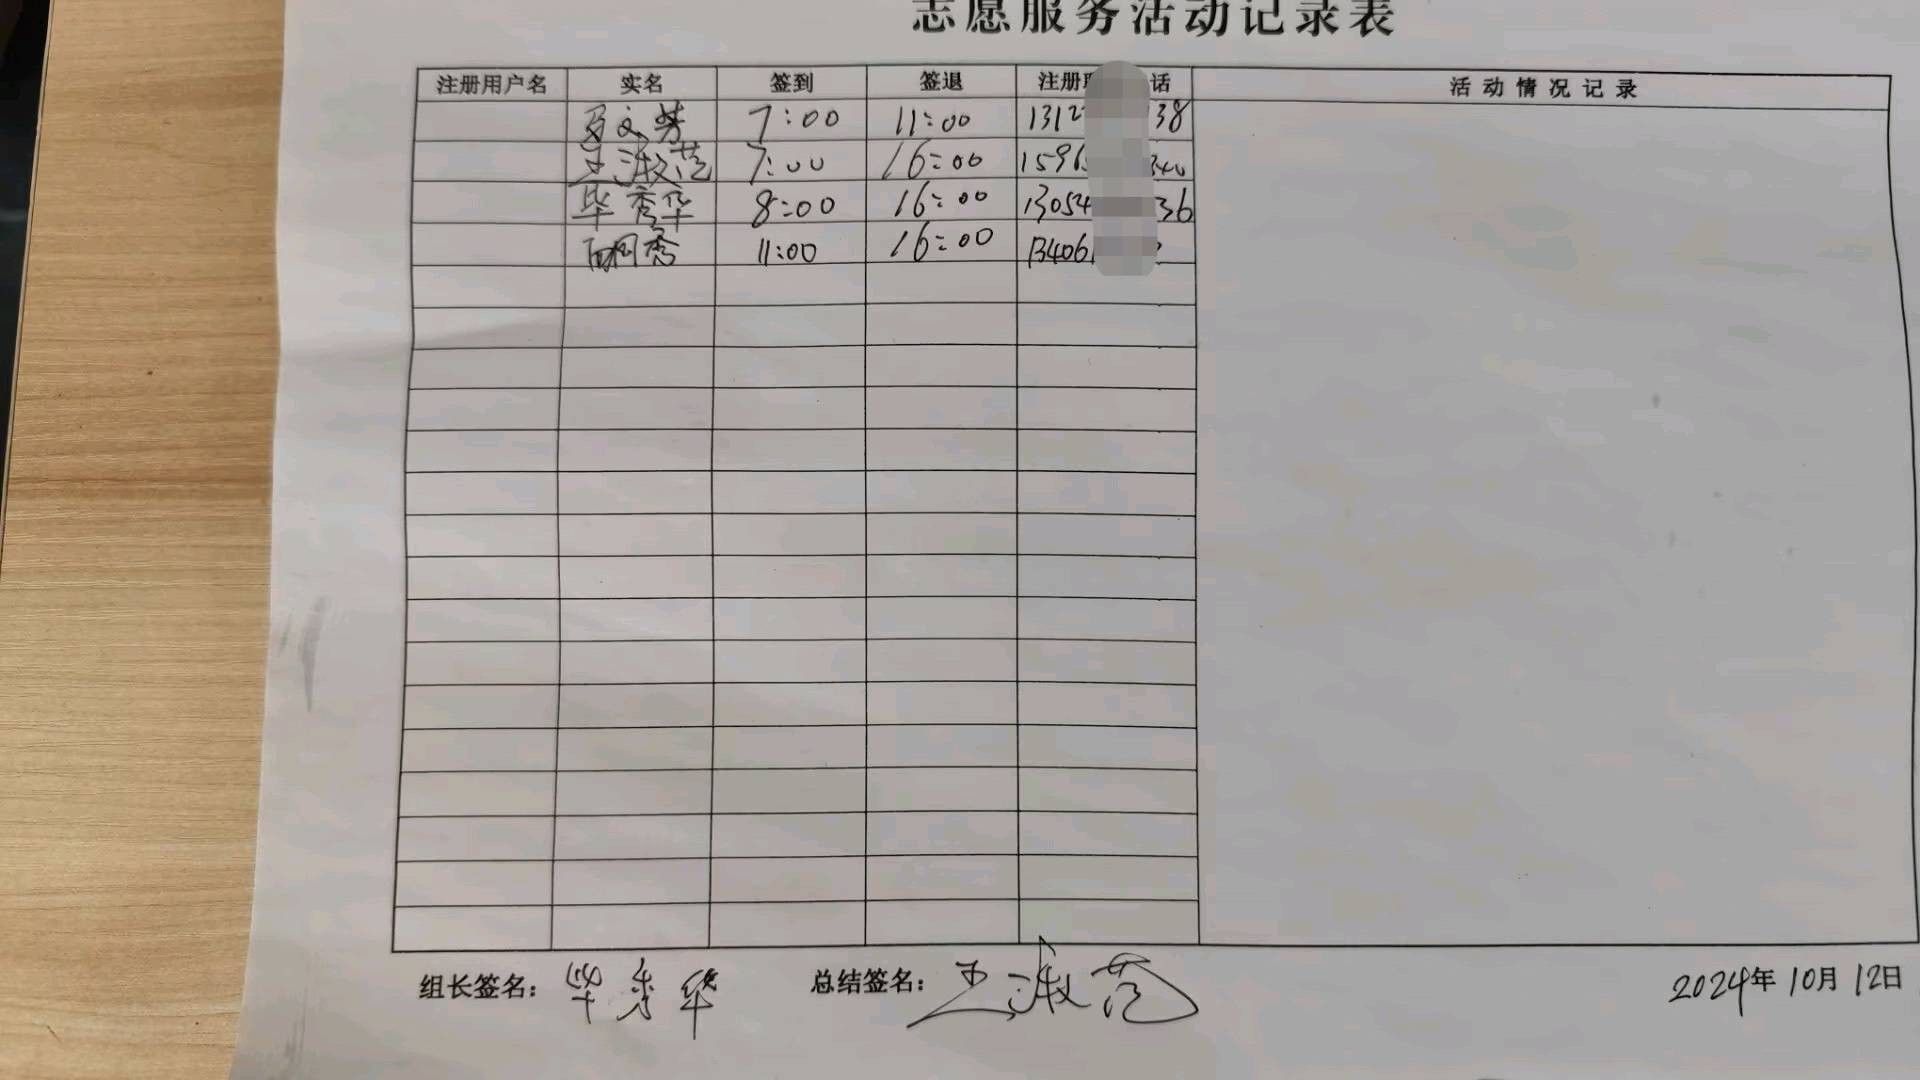 志愿服务活动记录表
注册用户名 实名 签到 签退 注册 话 活动情况记录
文 7:00 11:00 1312 38
王淑范 7:00 16:00 1596 340
毕秀华 8:00 16:00 13054 36
秀 11:00 16:00 13406
组长签名: 毕秀华 总结签名: 王淑范 2024年10月12日